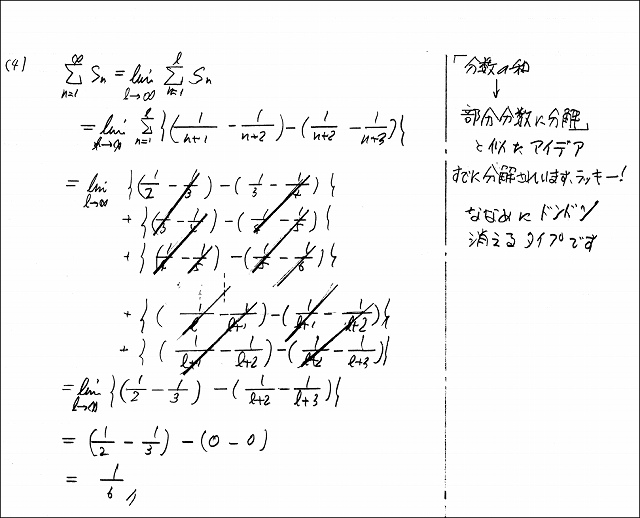 (4) ∑_{n=1}^{∞} S_n = lim_{l→∞} ∑_{n=1}^{l} S_n
= lim_{l→∞} ∑_{n=1}^{l} { (1/(n+1) - 1/(n+2)) - (1/(n+2) - 1/(n+3)) }
= lim_{l→∞} { (1/2 - 1/3) - (1/3 - 1/4) }
+ { (1/3 - 1/4) - (1/4 - 1/5) }
+ { (1/4 - 1/5) - (1/5 - 1/6) }
+ { (1/l - 1/(l+1)) - (1/(l+1) - 1/(l+2)) }
+ { (1/(l+1) - 1/(l+2)) - (1/(l+2) - 1/(l+3)) }
= lim_{l→∞} { (1/2 - 1/3) - (1/(l+2) - 1/(l+3)) }
= (1/2 - 1/3) - (0 - 0)
= 1/6 //
「分数の和
↓
部分分数に分解」
と似たアイデア
すでに分解されています、ラッキー!
ななめにドンドン
消えるタイプです